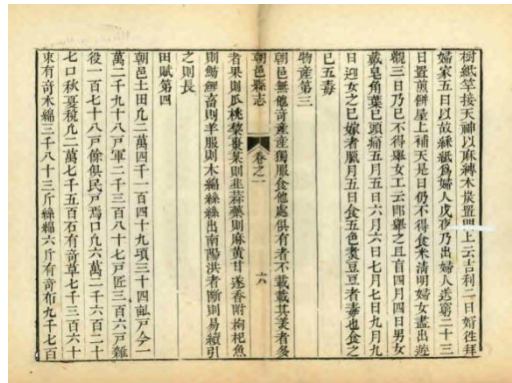 樹紙竿接天神以麻縛木炭置門上云吉利二日婿往拜
婦家五日以故紙紙為婦人戊夜乃出婦人送窮二十三
日置煎餅屋上補天是日仍不得食米清明婦女盡出遊
觀三日乃已不得舉女工云即舉之且盲四月四日男女
戴皂角葉已頭痛五月五日六月六日七月七日九月九
日迎女之已嫁者臘月五日食五色煑豆豆者毒也食之
已五毒
物產第三
朝邑無他奇產產獨服食他處俱有者不載載其美者多
朝邑縣志
卷之一
六
者果則瓜桃棃棗菜則韭蒜藥則麻黃甘遂香附枸杞魚
則鰑經畜則羊服則木綿絲絲出南陽洪者斷則易續引
之則長
田賦第四
朝邑土田凡二萬四千一百四十九頃三十四畝戸今一
萬二千九十八戸軍二千三百八十七戸匠三百六戸雜
役一百七十八戸餘俱民戸焉口凡六萬二千六百二十
七口秋夏稅凡二萬七千五百石有奇草七千三百六十
束有奇木綿三千八十三斤絲綿六斤有奇布九千七百